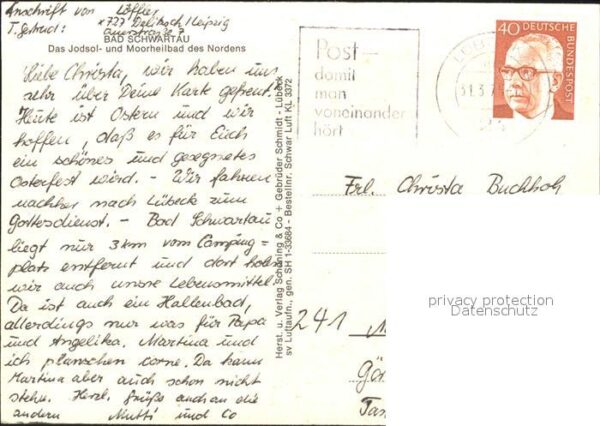 Anschrift von Löffler
T. Gertrud: x 727 Delitzsch/Leipzig
BAD SCHWARTAU
Das Jodsol- und Moorheilbad des Nordens
Liebe Christa, wir haben uns
sehr über Deine Karte gefreut.
Heute ist Ostern und wir
hoffen, daß es für Euch
ein schönes und gesegnetes
Osterfest wird. - Wir fahren
nachher nach Lübeck zum
Gottesdienst. - Bad Schwartau
liegt nur 3 km vom Camping=
platz entfernt und dort holen
wir auch unsre Lebensmittel.
Da ist auch ein Hallenbad,
allerdings nur was für Papa
und Angelika. Martina und
ich planschen vorne. Da kann
Martina aber auch schon nicht
stehn. Herzl. Grüße auch an die
andern Mutti und Co
Herst. u. Verlag Schöning & Co + Gebrüder Schmidt - Lübeck
sv Luftaufn., gen. SH 1-33684 - Bestellnr. Schwar Luft KL 3372
Post -
damit
man
voneinander
hört
40 DEUTSCHE
BUNDESPOST
31.3.7
Frl. Christa Buchholz
241
privacy protection
Datenschutz